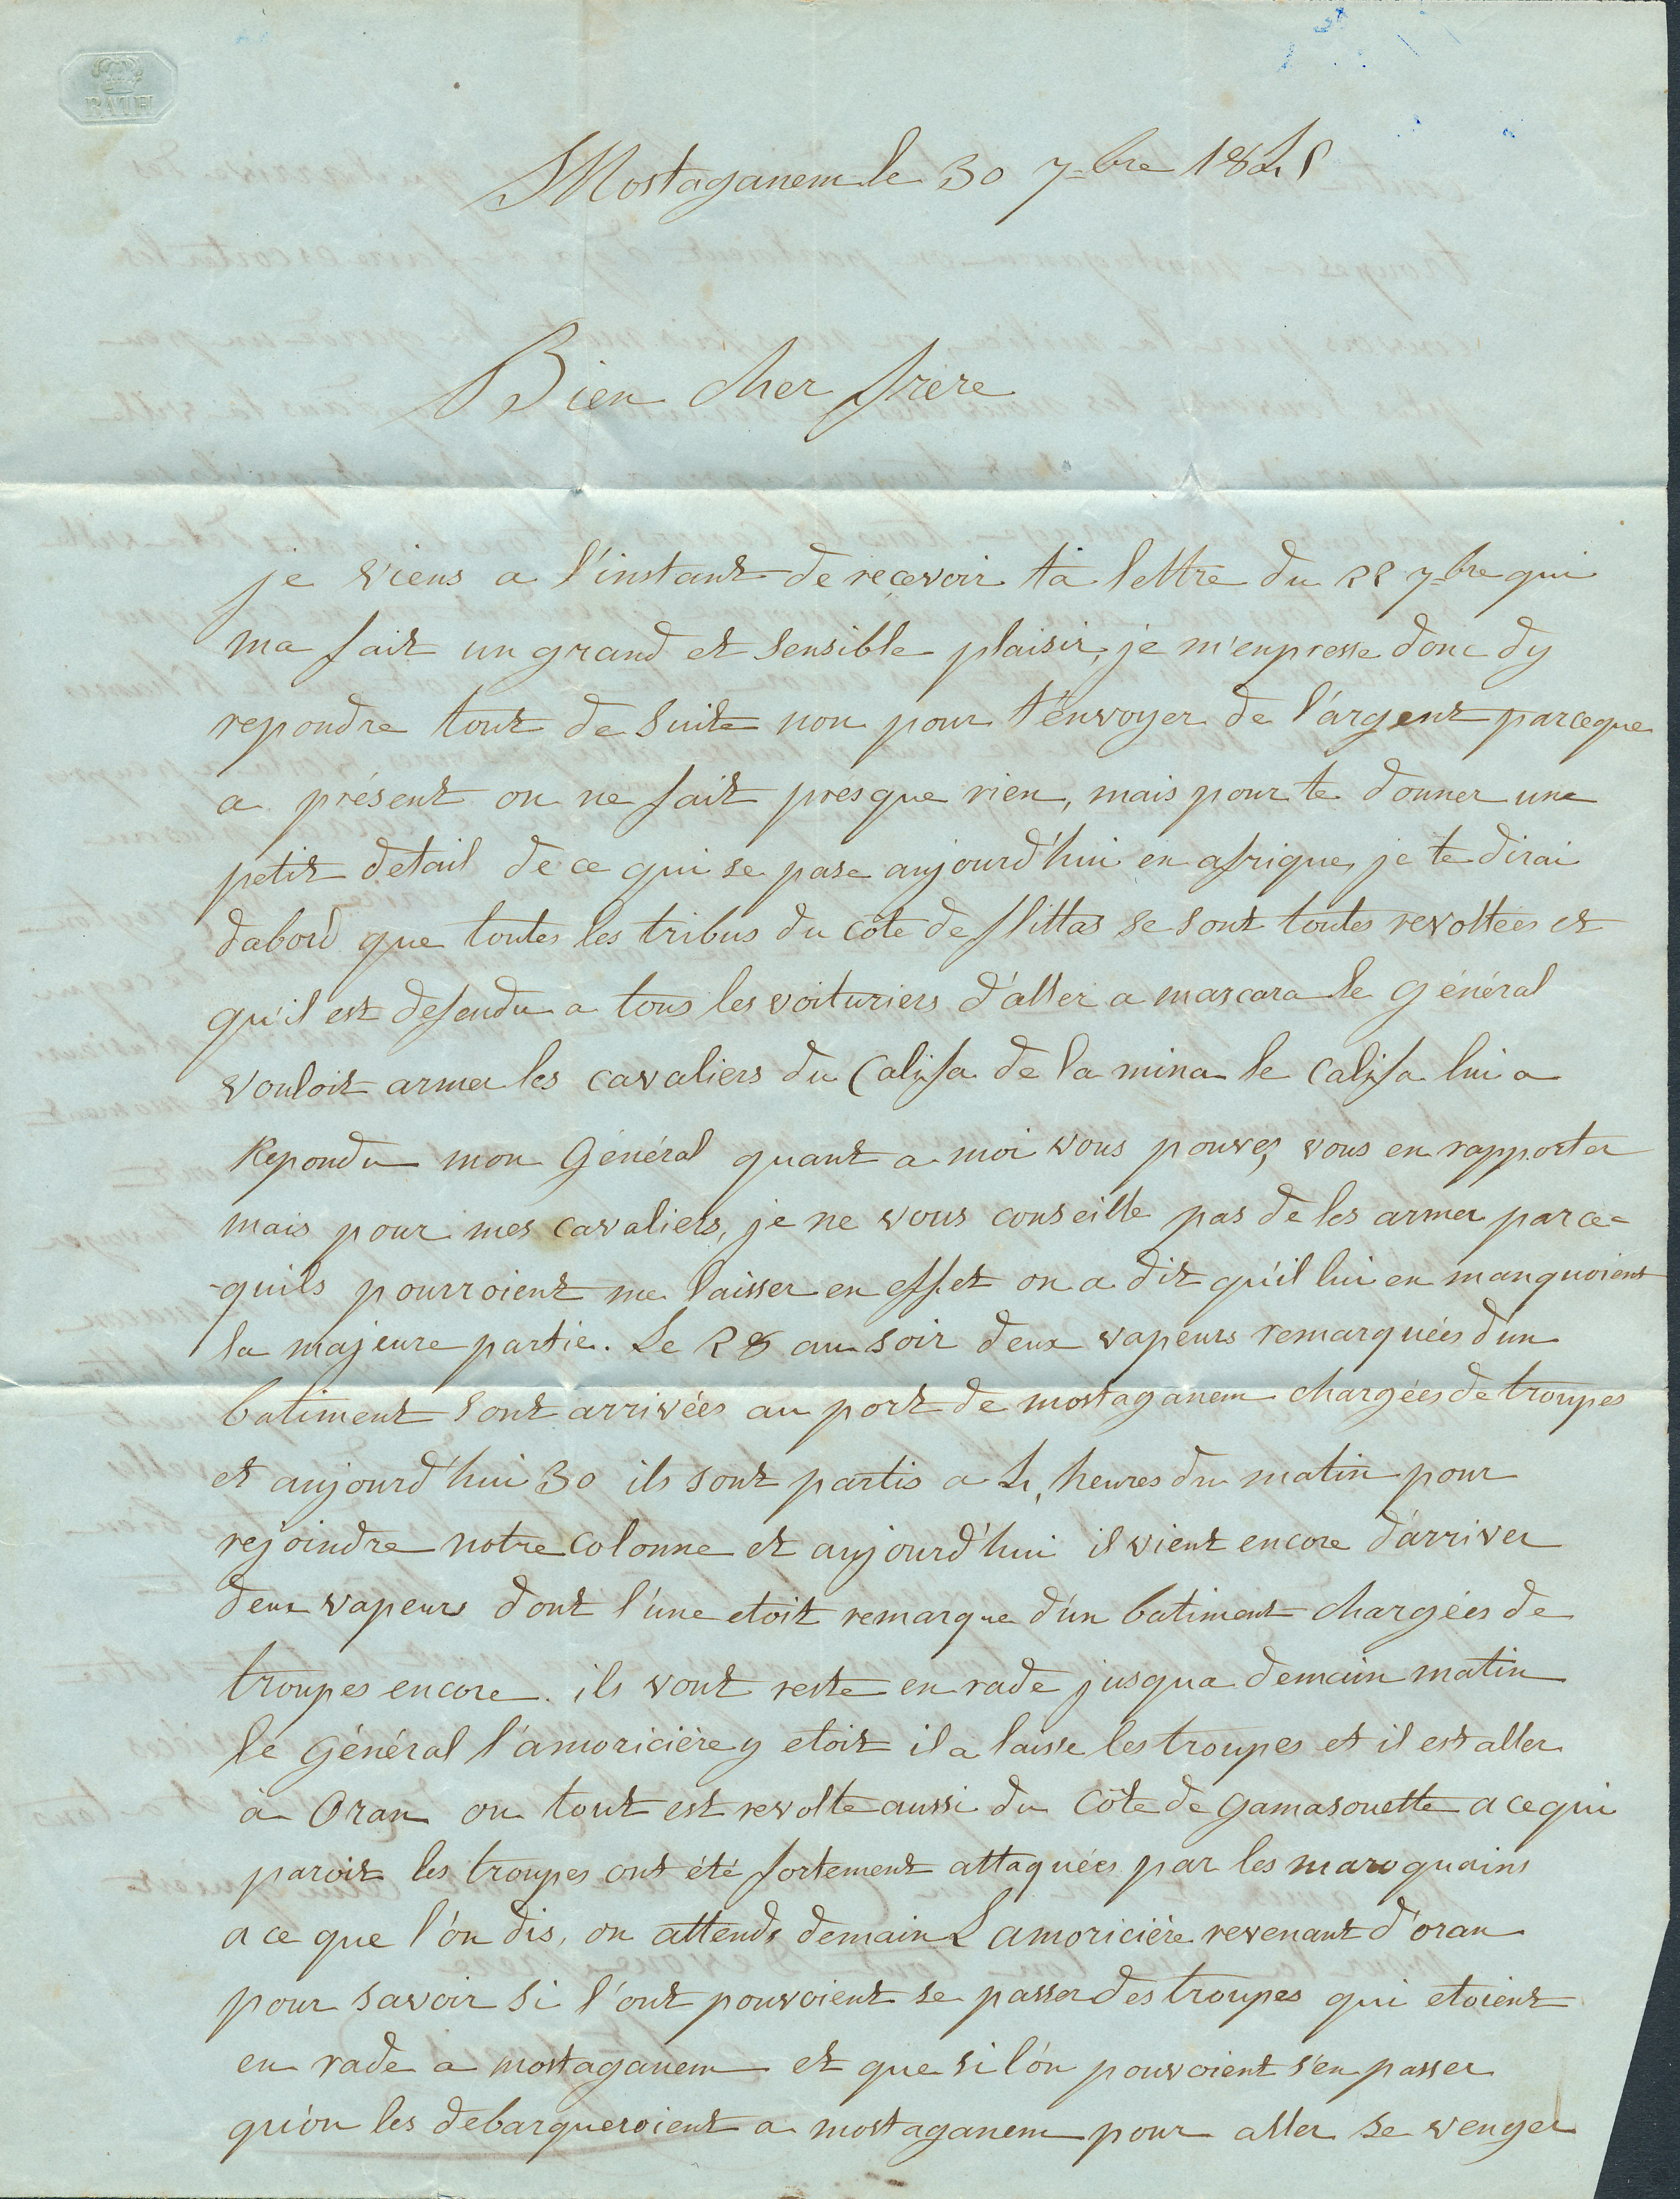 BATH
Mostaganem le 30 7-bre 1845
Bien cher frère
je viens a l'instant de reçevoir ta lettre du 22 7-bre qui
ma fait un grand et sensible plaisir, je m'enpresse donc dy
repondre tout de suite non pour t'envoyer de l'argent parceque
a présent on ne fait présque rien, mais pour te donner une
petit detail de ce qui se pase aujourd'hui en afrique, je te dirai
dabord que toutes les tribus du côte de flittas se sont toutes revoltées et
qu'il est defendu a tous les voituriers d'aller a mascara le général
vouloit armer les cavaliers du Califa de la mina le califa lui a
Repondu mon Général quant a moi vous pouvez vous en rapporter
mais pour mes cavaliers, je ne vous conseille pas de les armer parce-
-quils pourroient me laisser en effet on a dit qu'il lui en manquoient
la majeure partie. Le 28 au soir deux vapeurs remarquées d'un
batiment sont arrivées au port de mostaganem chargées de troupes
et aujourd'hui 30 ils sont partis a 4, heures du matin pour
rejoindre notre colonne et aujourd'hui il vient encore d'arriver
deux vapeurs dont l'une etoit remarque d'un batiment chargées de
troupes encore. ils vont reste en rade jusqua demain matin
le Général l'amoricière y etoit il a laisse les troupes et il est aller
à Oran ou tout est revolte aussi du Côte de gamasouette a ce qui
paroit les troupes ont été fortement attaquées par les maroquains
a ce que l'on dis, on attends demain Lamoricière revenant d'oran
pour savoir si l'ont pouvoient se passer des troupes qui etoient
en rade a mostaganem et que si l'on pouvoient s'en passer
qu'on les debarqueroient a mostaganem pour aller se venger